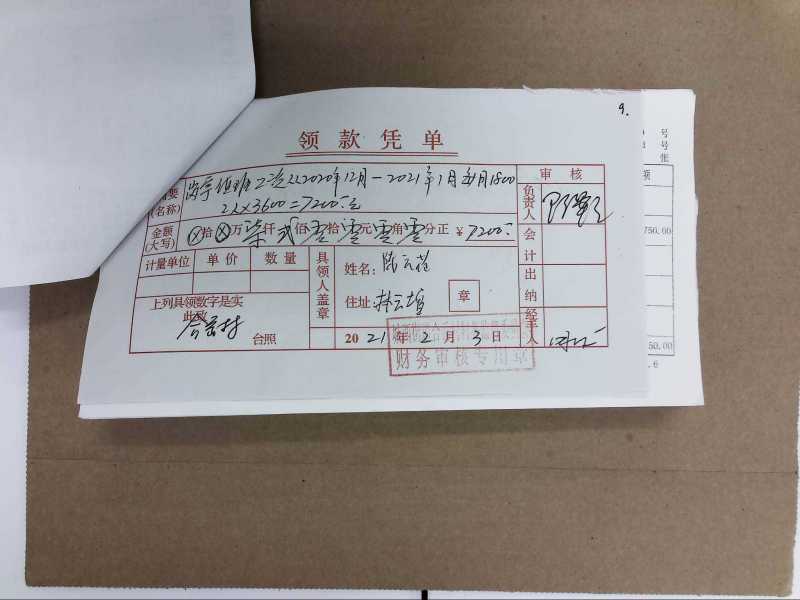 9.
号
号
张
领款凭单
摘要
(名称)
值班工资2人2020年12月-2021年1月每月1800
2人×3600=7200元
审核
负责人
额
金额
(大写)
ⓧ拾ⓧ万柒仟弍佰零拾零元零角零分正 ¥7200
会计
750.00
计量单位 单价 数量
具领人盖章
姓名:
住址:
章
出纳
上列具领数字是实
此致
台照
2021年2月3日
财务审核专用章
经手人
50.00
6